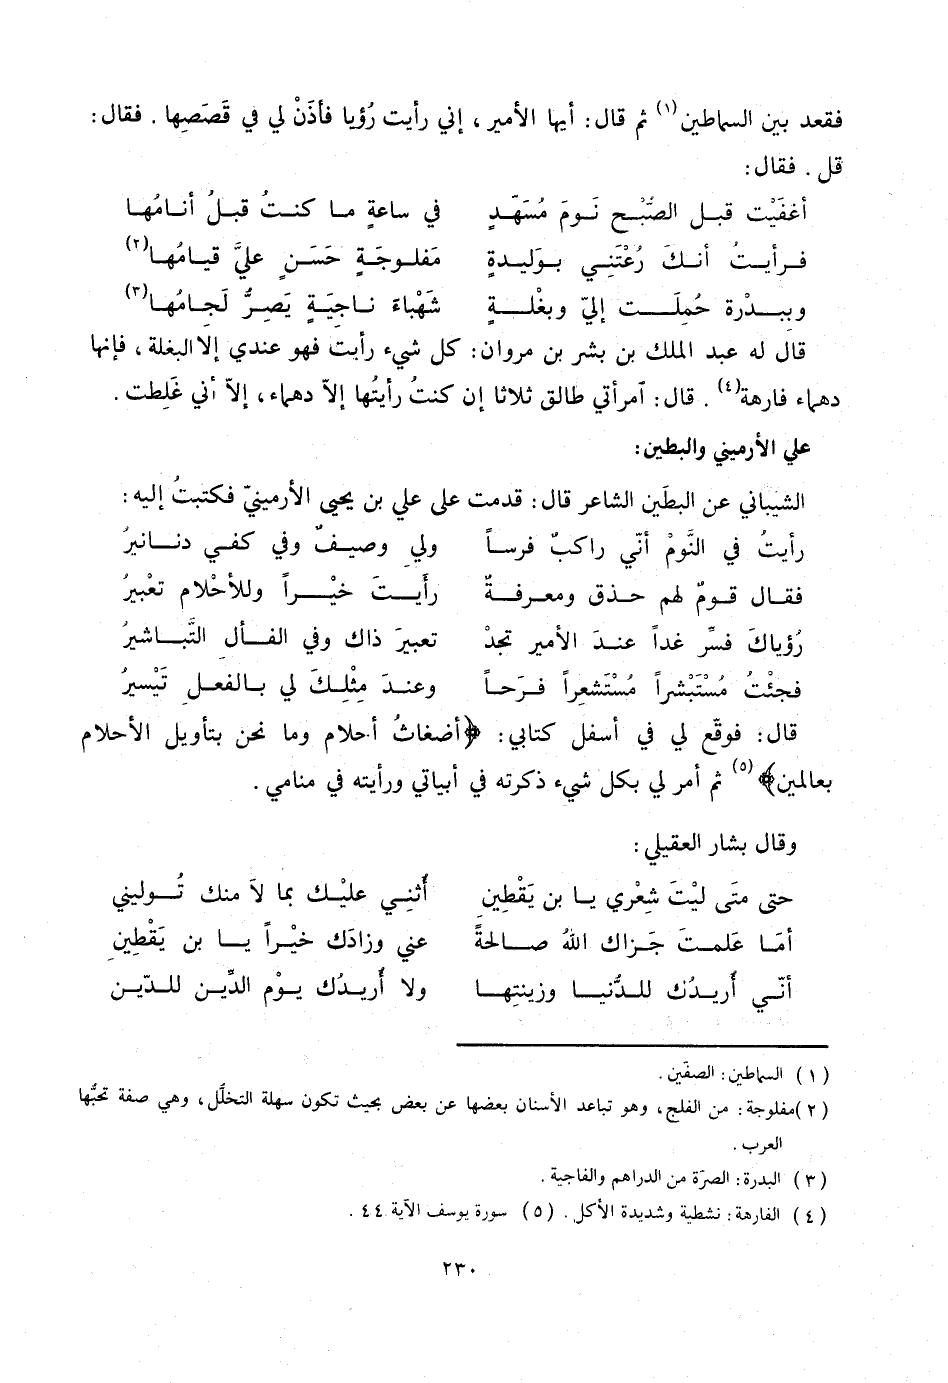 فقعد بين السماطين(١) ثم قال: أيها الأمير، إني رأيت رُؤيا فأذَنْ لي في قَصَصِها. فقال:
قل. فقال:
أغفَيْت قبل الصّبْح نَومَ مُسَهَّدٍ في ساعةٍ ما كنتُ قبلُ أنامُها
فرأيتُ أنكَ رُعْتَنِي بوَليدةٍ مَفلوجَةٍ حَسَنٍ عليَّ قيامُها(٢)
وببدْرة حُمِلَت إليّ وبغْلةٍ شَهْباءَ ناجيَةٍ يَصِرُّ لَجامُها(٣)
قال له عبد الملك بن بشر بن مروان: كل شيء رأيت فهو عندي إلا البغلة، فإنها
دهماء فارهة(٤). قال: آمرأتي طالق ثلاثا إن كنتُ رأيتُها إلاّ دهماء، إلاّ أني غَلِطت.
علي الأرميني والبطين:
الشيباني عن البطَين الشاعر قال: قدمت على علي بن يحيى الأرمينيّ فكتبتُ إليه:
رأيتُ في النَّومْ أنّي راكبٌ فرساً ولي وصيفٌ وفي كفي دنانيرُ
فقال قومٌ لهم حذق ومعرفةٌ رأَيتَ خيْراً وللأحْلام تعْبيرُ
رُؤياكَ فسِّر غداً عندَ الأمير تجدْ تعبيرَ ذاك وفي الفأل التَّباشيرُ
فجئْتُ مُسْتَبْشراً مُسْتَشعِراً فرَحاً وعندَ مثْلِكَ لي بالفعلِ تَيْسيرُ
قال: فوقّع لي في أسفل كتابي: ﴿أضغاثُ أحلام وما نحن بتأويل الأحلام
بعالمين﴾(٥) ثم أمر لي بكل شيء ذكرته في أبياتي ورأيته في منامي.
وقال بشار العقيلي:
حتى متَى ليْتَ شِعْري يا بن يَقْطِينِ أُثنِي عليْك بما لاَ منك تُوليني
أمَا عَلمتَ جَزاك اللهُ صالحةً عني وزادَك خيْراً يا بن يَقْطِينِ
أنّي أُريدُك للدُّنيا وزينتِها ولا أُريدُك يوْم الدِّين للدّين
(١) السماطين: الصفّين.
(٢) مفلوجة: من الفلج، وهو تباعد الأسنان بعضها عن بعض بحيث تكون سهلة التخلّل، وهي صفة تحبُّها
العرب.
(٣) البدرة: الصرّة من الدراهم والفاجية.
(٤) الفارهة: نشطية وشديدة الأكل. (٥) سورة يوسف الآية ٤٤.
٢٣٠